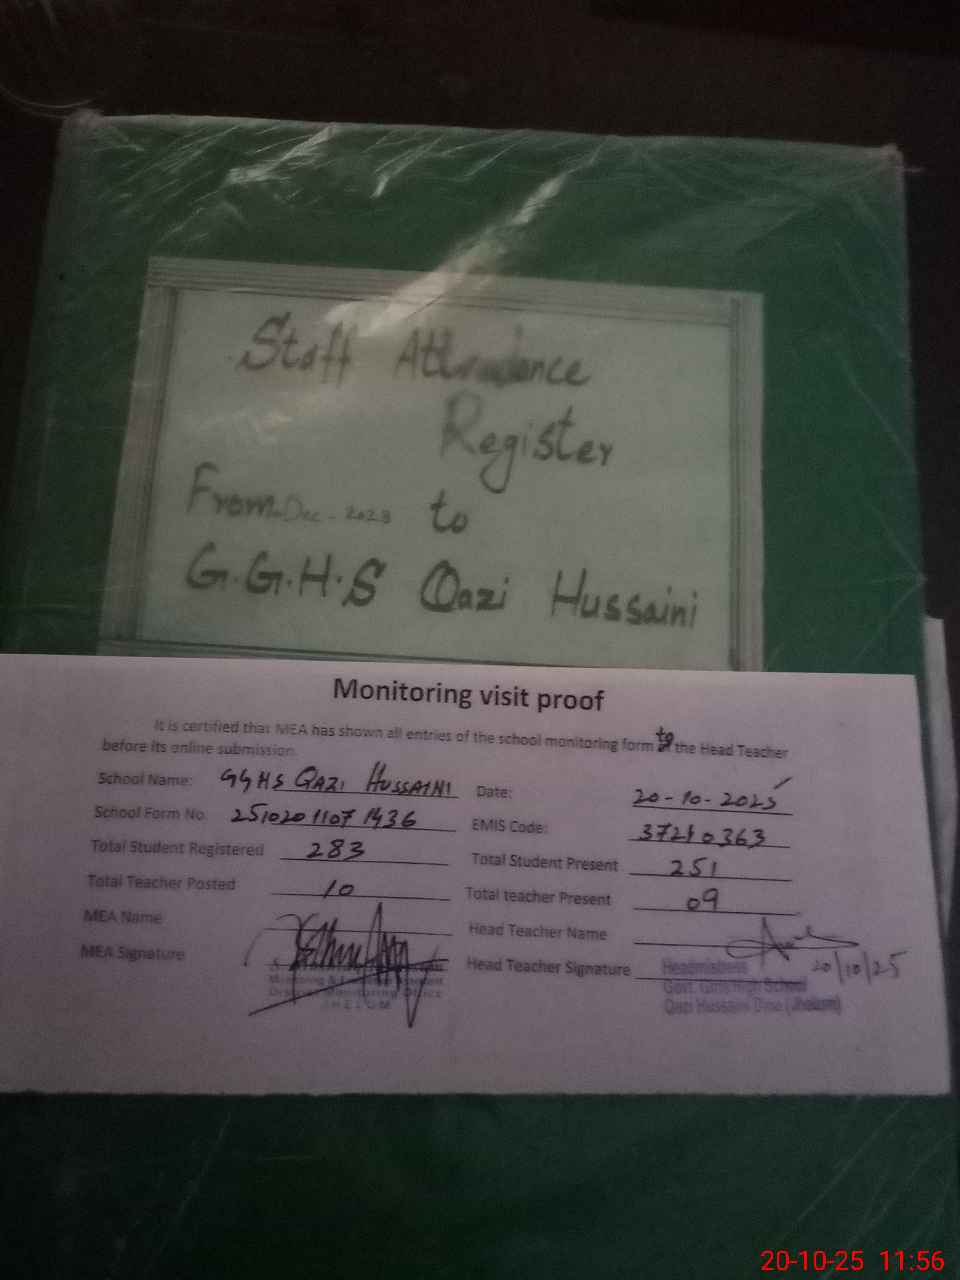 Staff Attendance
Register
From Dec - 2023 to
G.G.H.S Qazi Hussaini
Monitoring visit proof
It is certified that MEA has shown all entries of the school monitoring form to the Head Teacher
before its online submission.
School Name: GGHS QAZI HUSSAINI Date: 20-10-2025
School Form No. 2510201107 1436 EMIS Code: 37210363
Total Student Registered 283 Total Student Present 251
Total Teacher Posted 10 Total teacher Present 09
MEA Name Head Teacher Name
MEA Signature Head Teacher Signature 20/10/25
Headmistress
Govt. Girls High School
Qazi Hussaini Dina (Jhelum)
Monitoring
District Monitoring Office
JHELUM
20-10-25 11:56